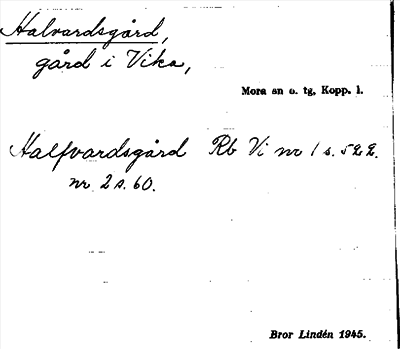 Halvardsgård,
gård i Vika,
Mora sn o. tg, Kopp. l.
Halfvardsgård Rb Vi nr 1 s. 522.
nr 2 s. 60.
Bror Lindén 1945.